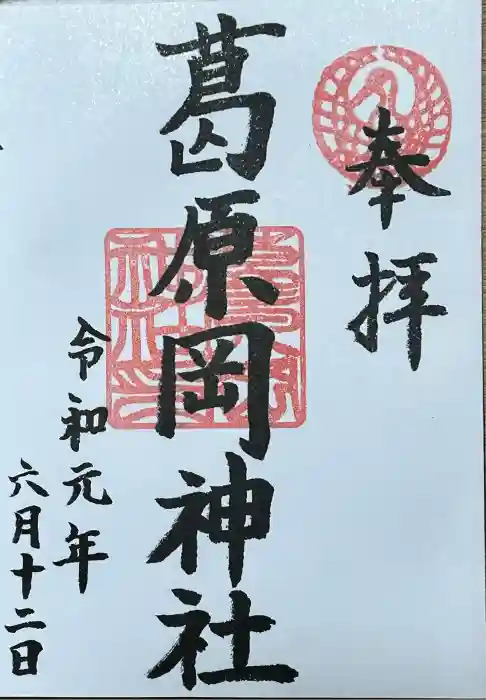 奉拝
葛原岡神社
令和元年
六月十二日